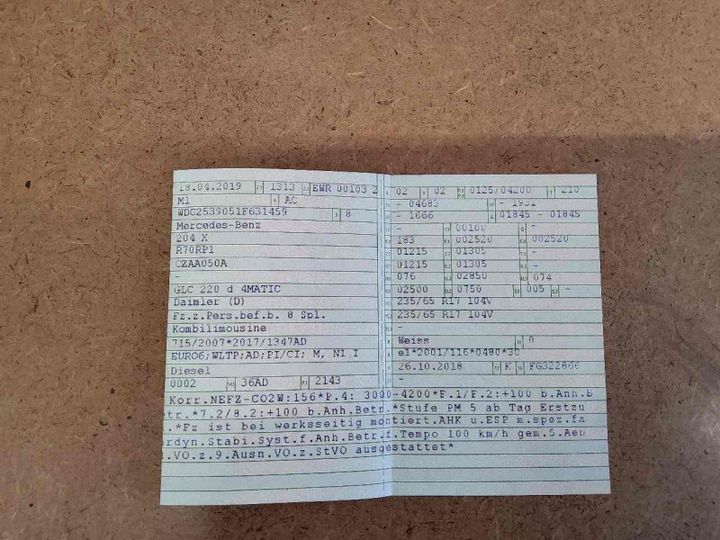 18.04.2019 1313 EWR 00103 2
M1 AC
WDC2539051F631459 8
Mercedes-Benz
204 X
R70RP1
CZAA050A
-
GLC 220 d 4MATIC
Daimler (D)
Fz.z.Pers.bef.b. 8 Spl.
Kombilimousine
715/2007*2017/1347AD
EURO6;WLTP;AD;PI/CI; M, N1 I
Diesel
0002 36AD 2143
02 02 0125/04200 210
- 04683 - 1931
- 1666 01845 - 01845
- 00100 -
183 002520 002520
01215 01305 -
01215 01305 -
076 02850 074
02500 0750 005 -
235/65 R17 104V
235/65 R17 104V
-
Weiss 0
e1*2001/116*0480*30
26.10.2018 K FG322866
-
Korr.NEFZ-CO2W:156*P.4: 3000-4200*F.1/F.2:+100 b.Anh.B
tr.*7.2/8.2:+100 b.Anh.Betr.*Stufe PM 5 ab Tag Erstzu
.*Fz ist bei werksseitig montiert.AHK u.ESP m.spez.fa
rdyn.Stabi.Syst.f.Anh.Betr.f.Tempo 100 km/h gem.5.Aen
.VO.z.9.Ausn.VO.z.StVO ausgestattet*